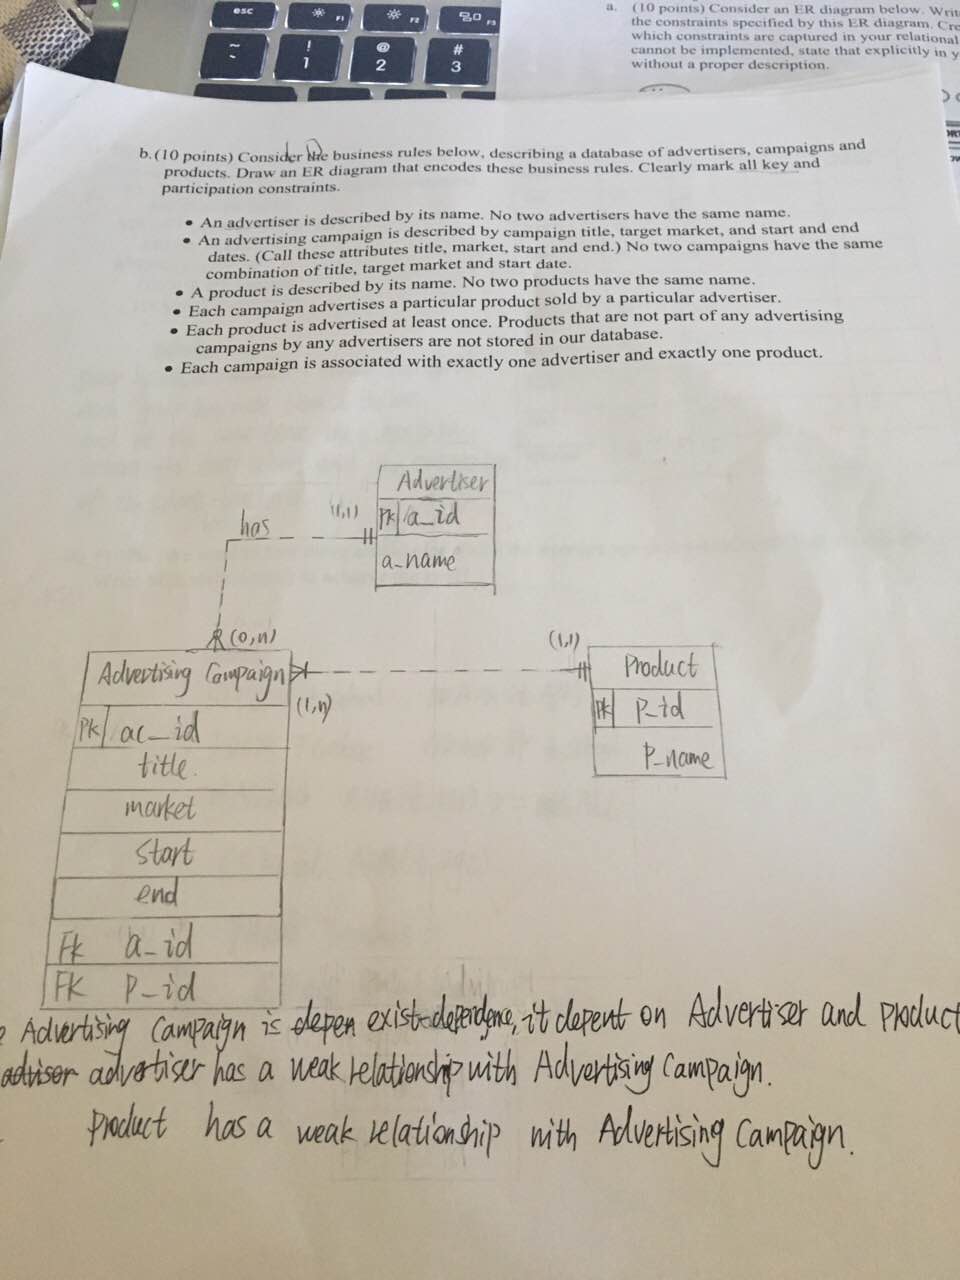 esc F1 F2 F3
~ ! @ #
1 2 3
a. (10 points) Consider an ER diagram below.
the constraints specified by this ER diagram.
which constraints are captured in your relational
cannot be implemented, state that explicitly in
without a proper description.
b. (10 points) Consider the business rules below, describing a database of advertisers, campaigns and
products. Draw an ER diagram that encodes these business rules. Clearly mark all key and
participation constraints.
• An advertiser is described by its name. No two advertisers have the same name.
• An advertising campaign is described by campaign title, target market, and start and end
dates. (Call these attributes title, market, start and end.) No two campaigns have the same
combination of title, target market and start date.
• A product is described by its name. No two products have the same name.
• Each campaign advertises a particular product sold by a particular advertiser.
• Each product is advertised at least once. Products that are not part of any advertising
campaigns by any advertisers are not stored in our database.
• Each campaign is associated with exactly one advertiser and exactly one product.
Advertiser
has (1,1) PK a_id
a-name
(0,n) (1,1)
Advertising Campaign Product
(1,n) PK P-id
PK ac_id
P-name
title.
market
start
end
FK a-id
FK P-id
Advertising Campaign is depen exist-dependence, it depent on Advertiser and product
advisor advertiser has a weak relationship with Advertising Campaign.
Product has a weak relationship with Advertising Campaign.